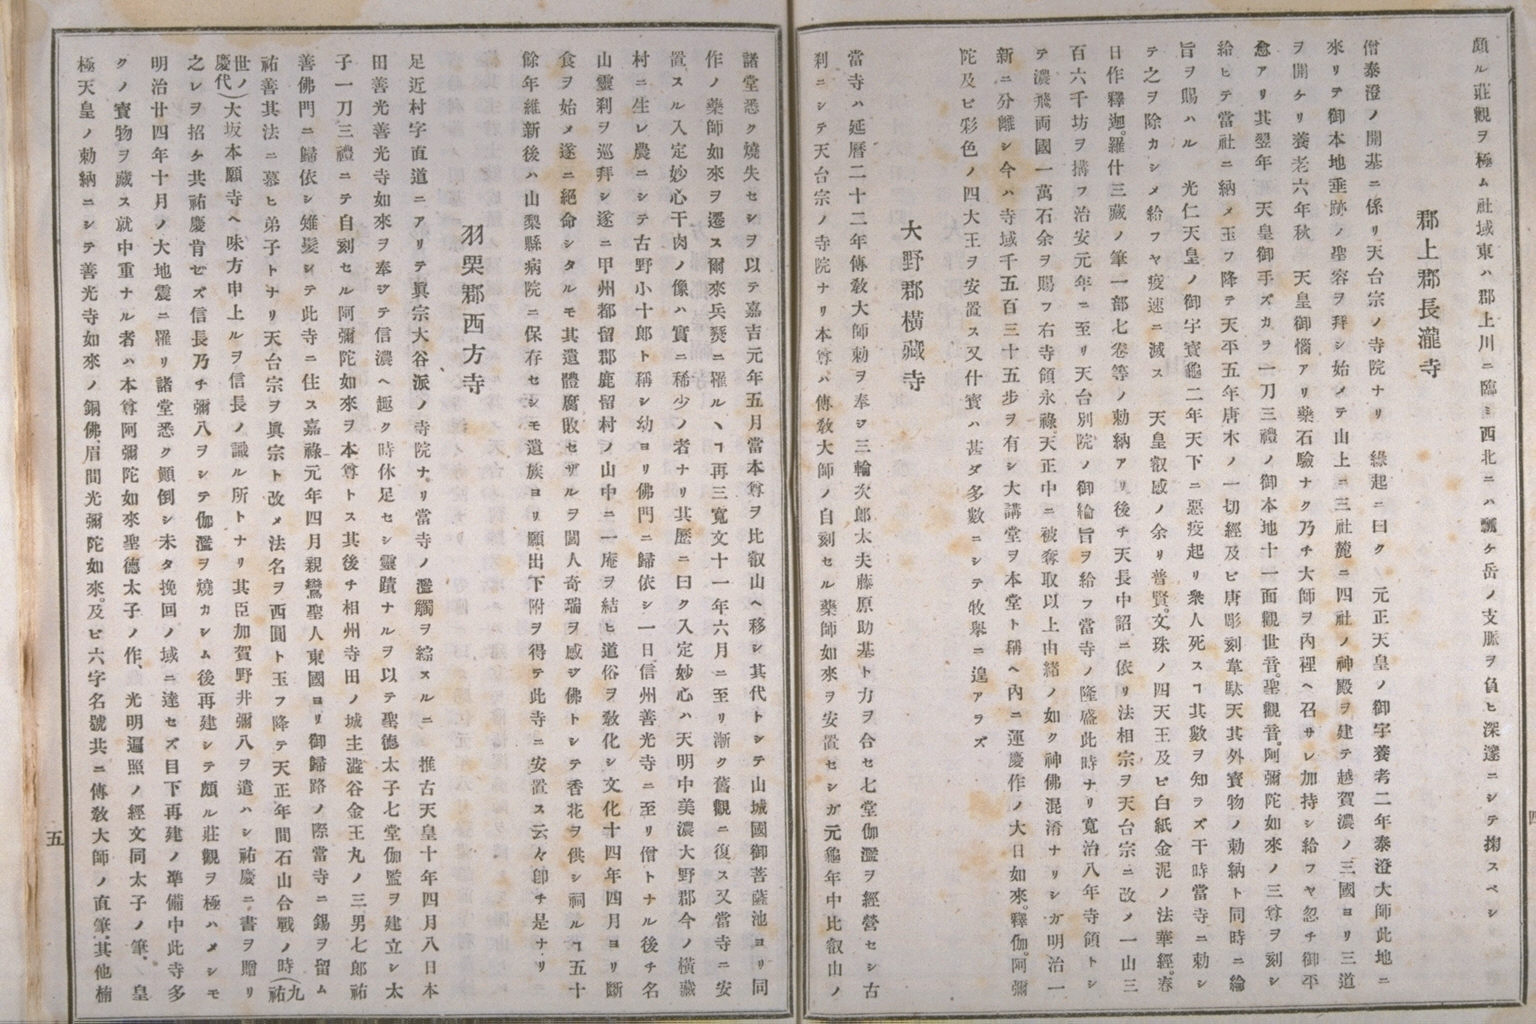 頗ル莊觀ヲ極ム社域東ハ郡上川ニ臨ミ西北ニハ瓢ケ岳ノ支脈ヲ負ヒ深邃ニシテ掬スベシ
郡上郡長瀧寺
僧泰澄ノ開基ニ係リ天台宗ノ寺院ナリ 緣起ニ曰ク 元正天皇ノ御宇養老二年泰澄大師此地ニ
來リテ御本地垂跡ノ聖容ヲ拜シ始メテ山上ニ三社麓ニ四社ノ神殿ヲ建テ越賀濃ノ三國ヨリ三道
ヲ開ケリ養老六年秋 天皇御惱アリ藥石驗ナク乃チ大師ヲ內裡ヘ召サレ加持シ給フヤ忽チ御平
愈アリ其翌年 天皇御手ズカラ一刀三禮ノ御本地十一面觀世音。聖觀音。阿彌陀如來ノ三尊ヲ刻シ
給ヒテ當社ニ納メ玉フ降テ天平五年唐木ノ一切經及ビ唐彫刻韋駄天其外寳物ノ勅納ト同時ニ綸
旨ヲ賜ハル 光仁天皇ノ御宇寳龜二年天下ニ惡疫起リ衆人死スヿ其數ヲ知ラズ干時當寺ニ勅シ
テ之ヲ除カシメ給フヤ疫速ニ滅ス 天皇叡感ノ余リ普賢。文珠ノ四天王及ビ白紙金泥ノ法華經。春
日作釋迦。羅什三藏ノ筆一部七卷等ノ勅納アリ後チ天長中詔ニ依リ法相宗ヲ天台宗ニ改メ一山三
百六千坊ヲ搆フ治安元年ニ至リ天台別院ノ御綸旨ヲ給フ當寺ノ隆盛此時ナリ寛治八年寺領トシ
テ濃飛両國一萬石余ヲ賜フ右寺領永祿天正中ニ被奪取以上由緒ノ如ク神佛混淆ナリシガ明治一
新ニ分離シ今ハ寺域千五百三十五步ヲ有シ大講堂ヲ本堂ト稱ヘ內ニ運慶作ノ大日如來。釋伽。阿彌
陀及ビ彩色ノ四大王ヲ安置ス又什寳ハ甚ダ多數ニシテ牧擧ニ遑アラズ
大野郡橫藏寺
當寺ハ延曆二十二年傳敎大師勅ヲ奉シ三輪次郎太夫藤原助基ト力ヲ合セ七堂伽濫ヲ經營セシ古
刹ニシテ天台宗ノ寺院ナリ本尊ハ傳敎大師ノ自刻セル藥師如來ヲ安置セシガ元龜年中比叡山ノ
諸堂悉ク燒失セシヲ以テ嘉吉元年五月當本尊ヲ比叡山ヘ移シ其代トシテ山城國御菩薩池ヨリ同
作ノ藥師如來ヲ遷ス爾來兵燹ニ罹ルヽヿ再三寛文十一年六月ニ至リ漸ク舊觀ニ復ス又當寺ニ安
置スル入定妙心干肉ノ像ハ實ニ稀少ノ者ナリ其歷ニ曰ク入定妙心ハ天明中美濃大野郡今ノ橫藏
村ニ生レ農ニシテ古野小十郎ト稱シ幼ヨリ佛門ニ歸依シ一日信州善光寺ニ至リ僧トナル後チ名
山靈刹ヲ巡拜シ遂ニ甲州都留郡鹿留村ノ山中ニ一庵ヲ結ヒ道俗ヲ敎化シ文化十四年四月ヨリ斷
食ヲ始メ遂ニ絕命シタルモ其遺體腐敗セザルヲ聞人奇瑞ヲ感ジ佛トシテ香花ヲ供シ祠ルヿ五十
餘年維新後ハ山梨縣病院ニ保存セシモ遺族ヨリ願出下附ヲ得テ此寺ニ安置ス云々卽チ是ナリ
羽栗郡西方寺
足近村字直道ニアリテ眞宗大谷派ノ寺院ナリ當寺ノ濫觴ヲ綜スルニ 推古天皇十年四月八日本
田善光善光寺如來ヲ奉ジテ信濃ヘ趣ク時休足セシ靈蹟ナルヲ以テ聖德太子七堂伽監ヲ建立シ太
子一刀三禮ニテ自刻セル阿彌陀如來ヲ本尊トス其後チ相州寺田ノ城主澁谷金王丸ノ三男七郎祐
善佛門ニ歸依シ雉髮シテ此寺ニ住ス嘉祿元年四月親鸞聖人東國ヨリ御歸路ノ際當寺ニ錫ヲ留ム
祐善其法ニ慕ヒ弟子トナリ天台宗ヲ眞宗ト改メ法名ヲ西圓ト玉フ降テ天正年間石山合戰ノ時(九世ノ祐
慶代)大坂本願寺ヘ味方申上ルヲ信長ノ識ル所トナリ其臣加賀野井彌八ヲ遣ハシ祐慶ニ書ヲ贈リ
之レヲ招ケ共祐慶肯ゼズ信長乃チ彌八ヲシテ伽濫ヲ燒カシム後再建シテ頗ル莊觀ヲ極ハメシモ
明治廿四年十月ノ大地震ニ罹リ諸堂悉ク顚倒シ未タ挽回ノ域ニ達セズ目下再建ノ凖備中此寺多
クノ寳物ヲ藏ス就中重ナル者ハ本尊阿彌陀如來聖德太子ノ作。光明遍照ノ經文同太子ノ筆。皇
極天皇ノ勅納ニシテ善光寺如來ノ銅佛。眉間光彌陀如來。及ビ六字名號共ニ傳敎大師ノ直筆。其他楠
五